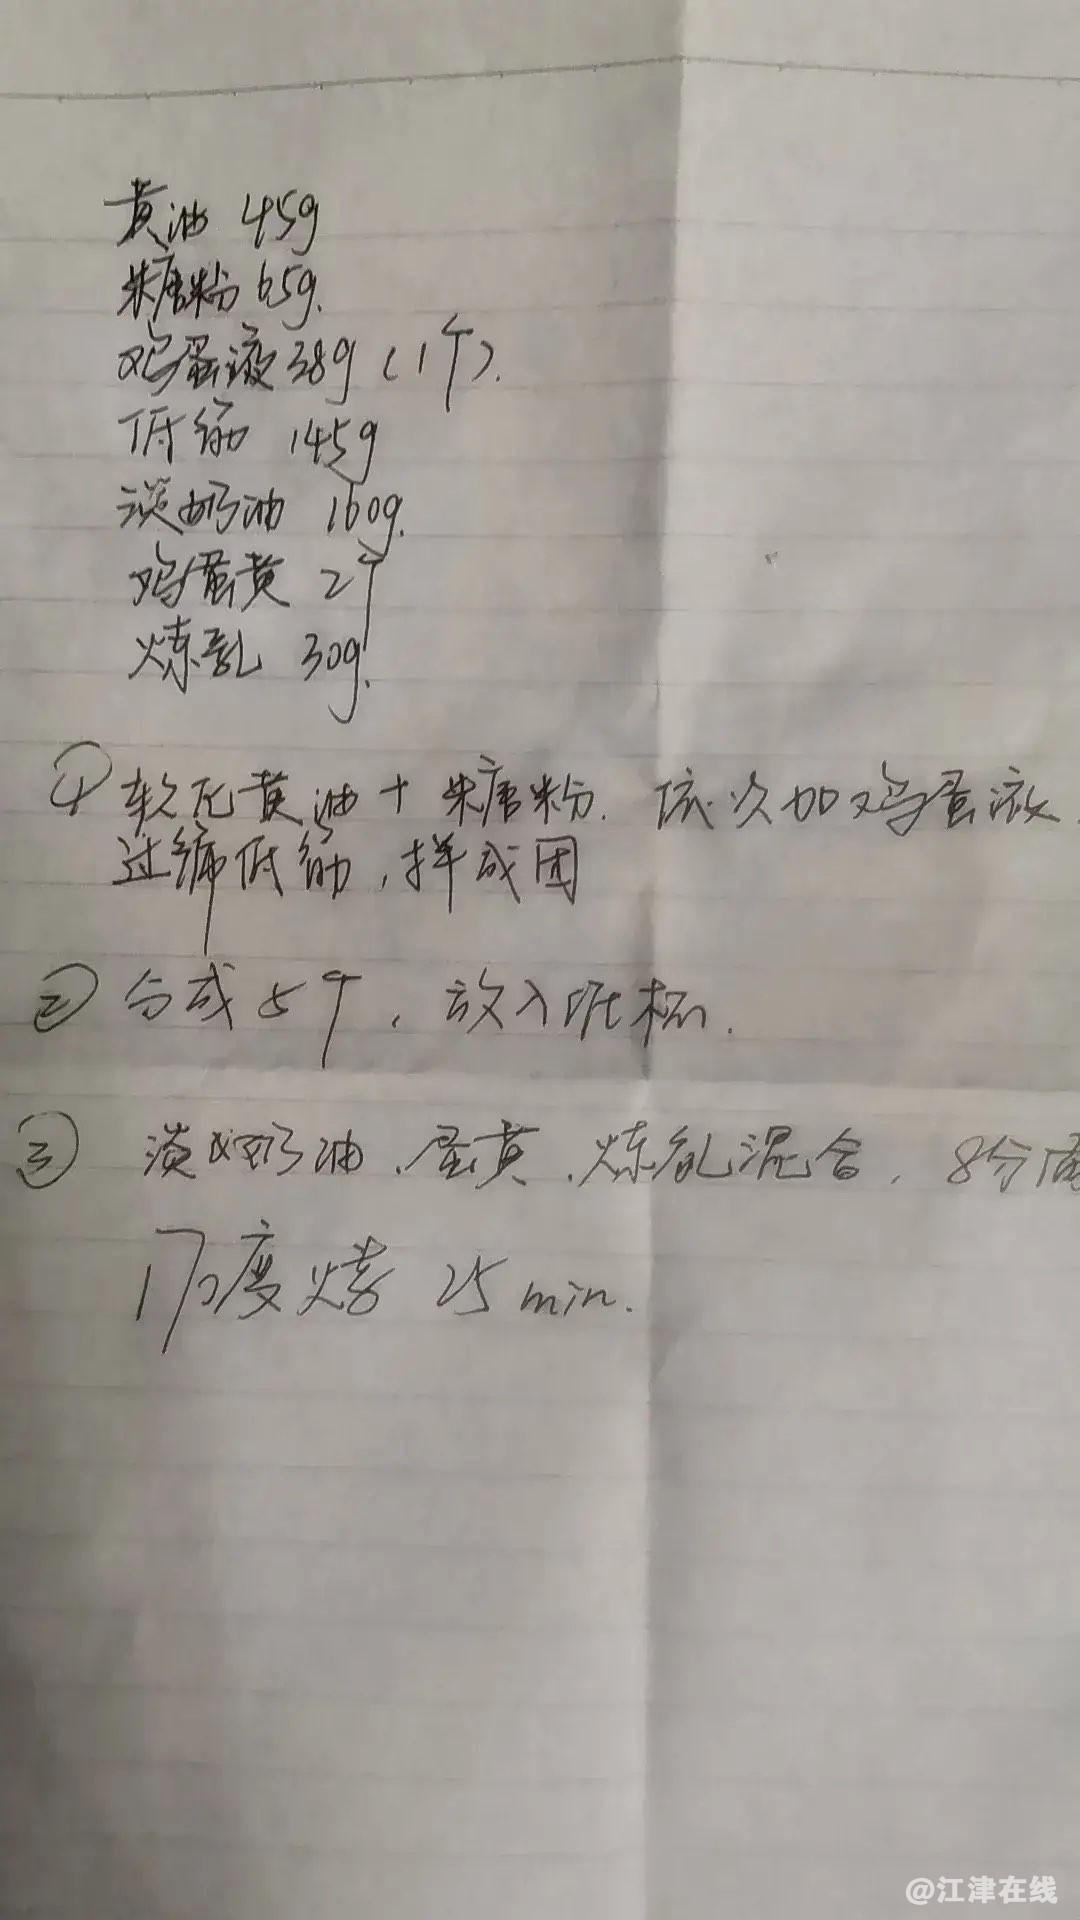 黄油 45g
糖粉 65g.
鸡蛋液 38g (1个).
低筋 145g
淡奶油 160g.
鸡蛋黄 2个
炼乳 30g.
① 软化黄油 + 糖粉. 依次加鸡蛋液.
过筛低筋, 拌成团
② 分成5个, 放入纸杯.
③ 淡奶油、蛋黄、炼乳混合, 8分
170度烤 25 min.
@江津在线